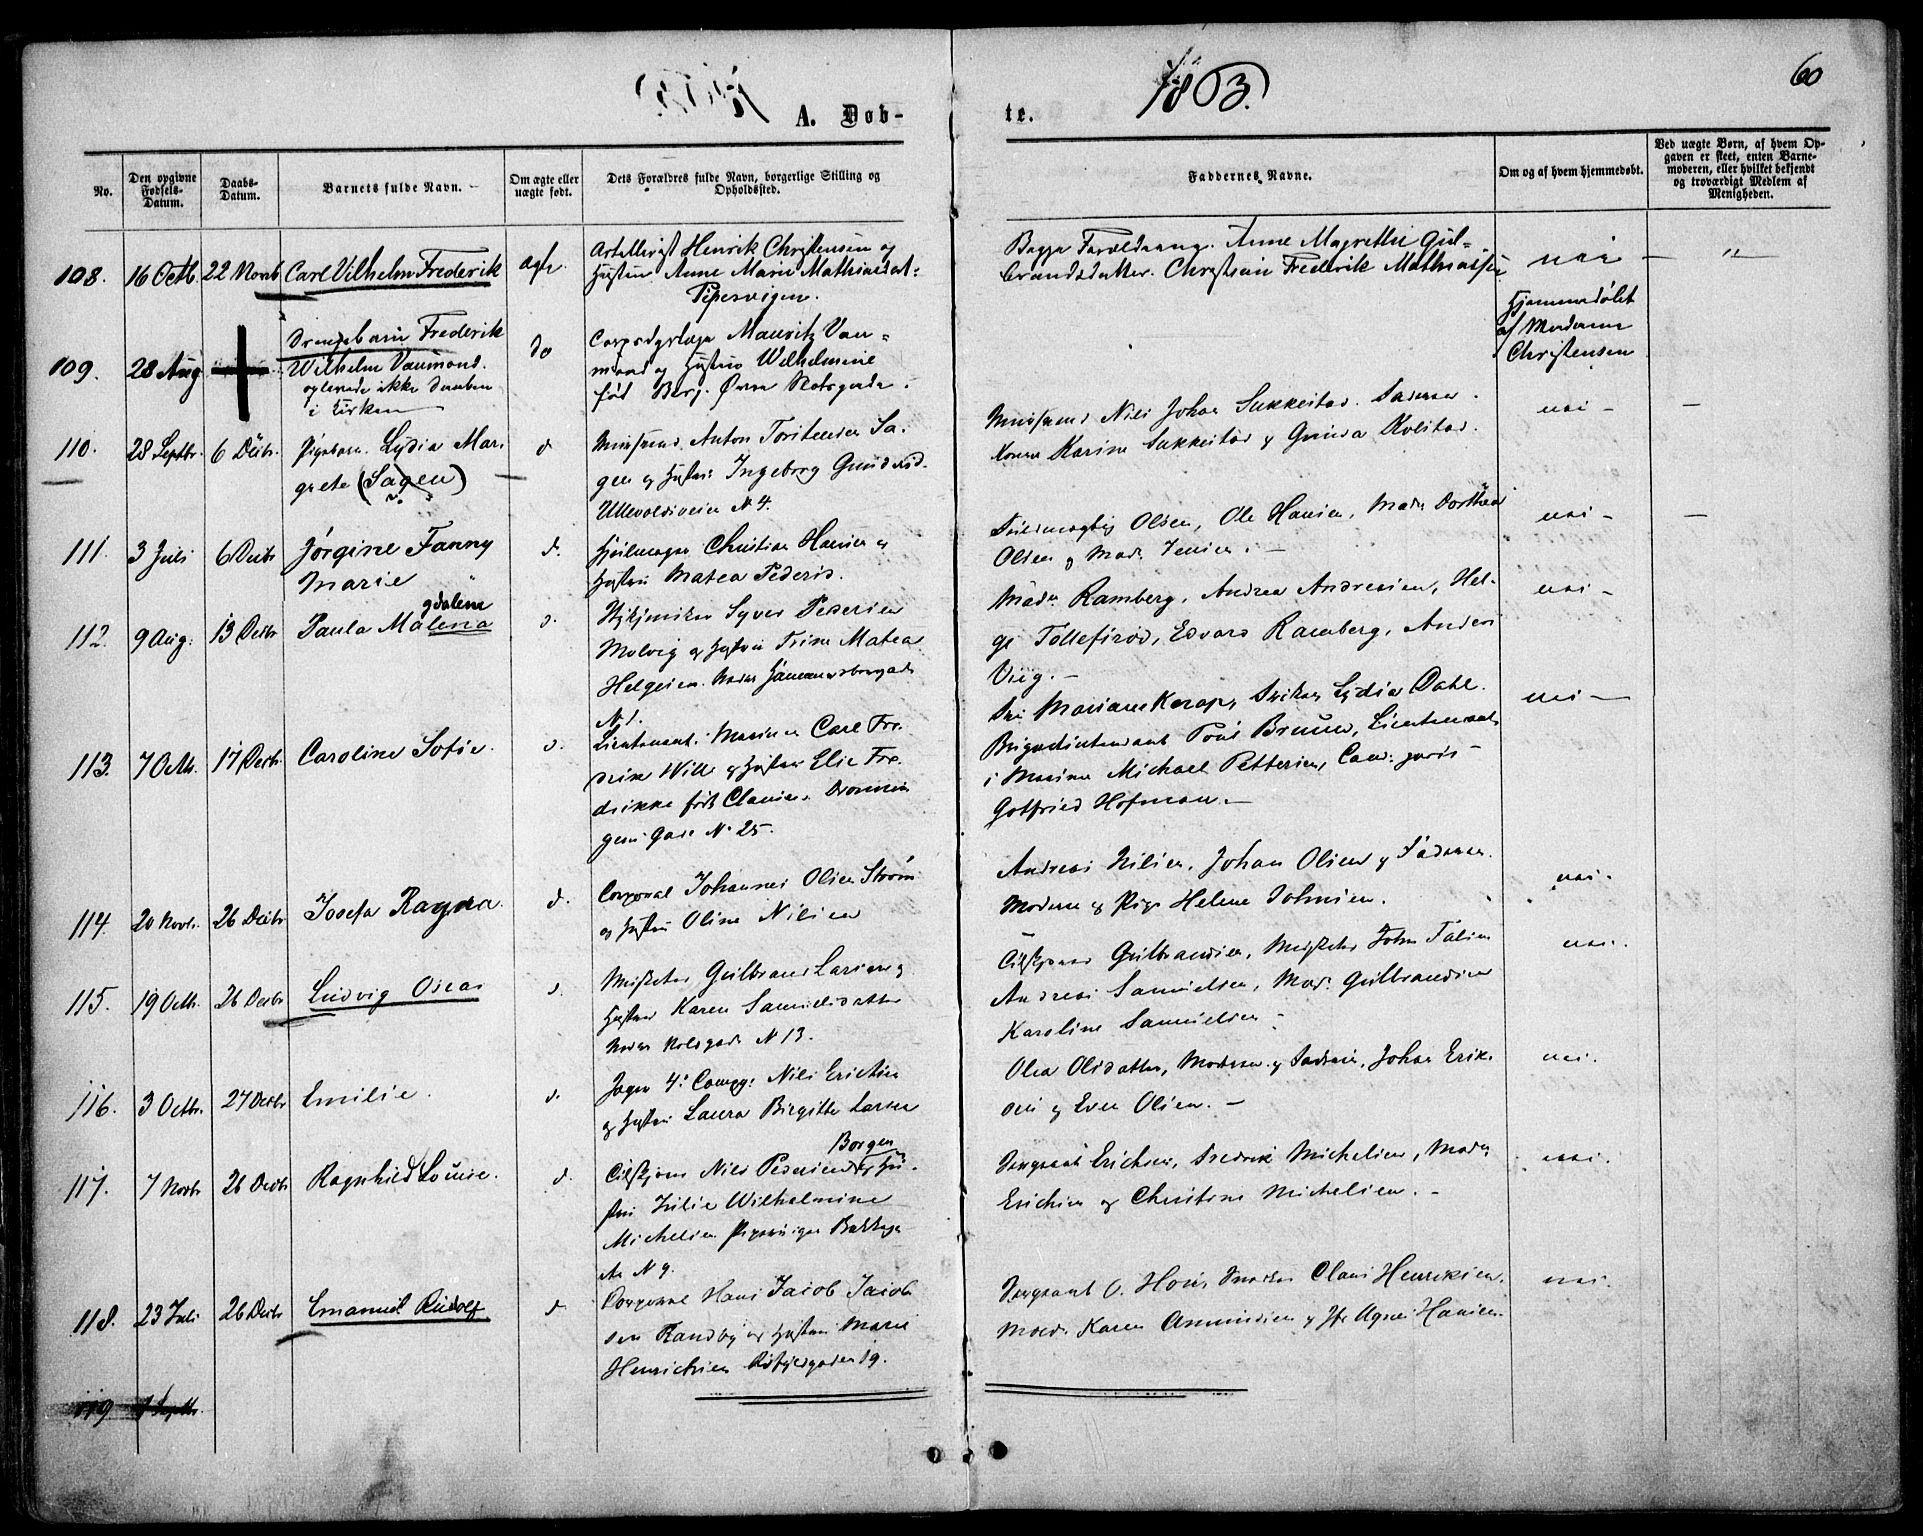 1863.
60
A. Døb-
te.
No.
Den opgivne Fødsels-Datum.
Daabs-Datum.
Barnets fulde Navn.
Om ægte eller uægte født.
Dets Forældres fulde Navn, borgerlige Stilling og Opholdssted.
Faddernes Navne.
Om og af hvem hjemmedøbt.
Ved uægte Børn, af hvem Opgaven er skeet, enten Barnemoderen, eller hvilket bekjendt og troværdigt Medlem af Menigheden.
108. 16 Octb. 22 Novb Carl Vilhelm Frederik ægte.
Artillerist Henrik Christensen og
Hustru Anne Marie Mathiasdat-
Pipervigen.
Begge Forældrene. Anne Magrethe Gul-
brandsdatter. Christian Frederik Mathiassen
nei — "
109. 28 Aug
Drengebarn Frederik
Wilhelm Vaumond.
oplevede ikke Daaben
i Kirken
do
Corpsdyrlæge Mauritz Vau-
mond og Hustru Wilhelmine
født Berg. Øvre Slotsgade.
Hjemmedøbt
af Madamme
Christensen
110. 28 Septbr. 6 Decbr. Pigebarn. Lydia Mar-
grete (Sagen)
d
Anton Torstensen Sa-
gen og Hustru Ingeborg Gunders-
Ullevoldsveien N 4.
Nils Johan Sukkestad. Faderen.
Konen Karine Sukkestad og Gunda Kolstad.
nei - —
111. 3 Juli 6 Decbr Jørgine Fanny
Marie
d.
Hjulmager Christian Hansen og
Hustru Matea Peders.
Fuldmægtig Olsen, Ole Hansen, Mad. Dorthea
Olsen og Mad. Jensen. —
nei - —
112. 9 Aug. 13 Decbr Paula Malena
gdalene
d.
Stykjunker Syver Pedersen
Molvig og Hustru Trine Matea
Helgesen.
N 1.
Mad. Ramberg, Andrea Andresen, Hel-
ge Tollefsrød, Edvard Ramberg, Anders
Viig. —
nei -
113. 7 Octb. 17 Decbr. Caroline Sofie.
d.
Lieutenant i Marinen Carl Fre-
derik Wille og Hustru Elise Fre-
drikke født Clausen. Dronnin-
gens Gade N. 25.
Lydia Dahl.
Poul Bruun, Lieutenant
i Marinen Michael Pettersen, Cand. juris
Gotfried Hofman. —
nei —
114. 20 Novb. 26 Decbr Josefa Ragna.
d.
Corporal Johannes Olsen Strøm
og Hustru Oline Nilsen
Andreas Nilsen, Johan Olsen og Faderen.
Moderen og Pige Helene Johnsen.
nei.
115. 19 Octb. 26 Decbr Ludvig Oscar
d.
Gulbrand Larsen og
Hustru Karen Samuelsdatter
N 13.
Gulbrandsen, John
Andreas Samuelsen, Mad. Gulbrandsen
Karoline Samuelsen -
nei.
116. 3 Octbr. 27 Decbr Emilie.
d.
Jæger 4. Comp. Nils Erichsen
og Hustru Laura Birgitte Larsen
Olea Olsdatter, Moderen og Faderen, Johan Erik-
sen og Even Olsen. —
nei.
117. 7 Novbr 26 Decbr Ragnhild Louise.
d.
Nils Pedersen og Hu-
Borgen
stru Julie Wilhelmine
Michelsen Pipervigen Bakkega-
de N 9.
Sergeant Erichsen, Fredrik Michelsen, Mad.
Erichsen og Christine Michelsen. —
nei.
118. 23 Juli 26 Decbr Emanuel Rudolf
d.
Corporal Hans Jacob Jacob-
sen Randby og Hustru Marie
Henrichsen 19.
Sergeant O. Claus Henriksen.
Mad. Karen Amundsen og Jfr Agnes Hansen.
nei.
119 1 Septbr.